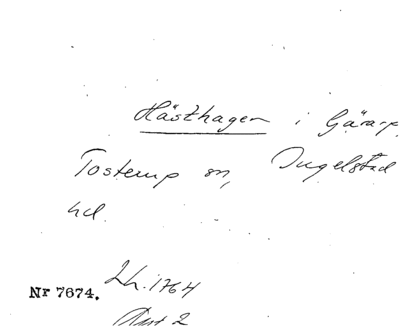 Hästhagen i Gärarp,
Tosterup sn, Ingelstad
hd.
Lh. 1764
Nr 7674.
Akt 2